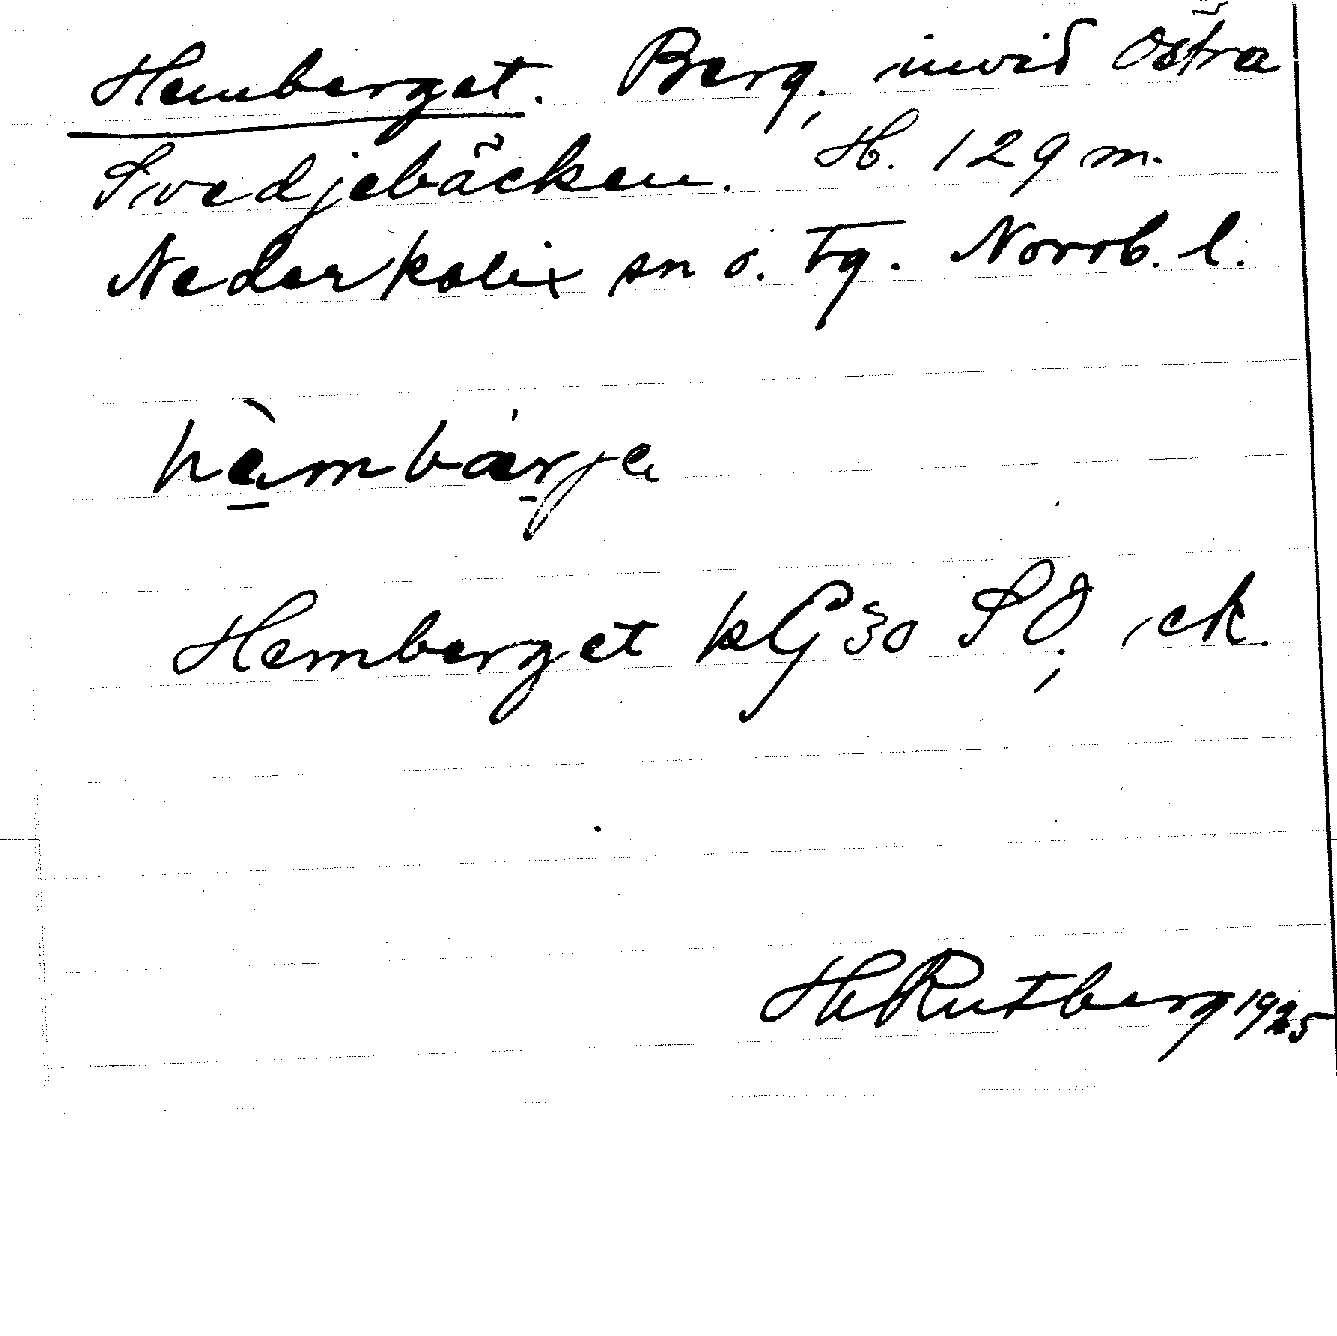 Hemberget. Berg, invid Östra
Svedjebäcken. H. 129 m.
Nederkalix sn o. tg. Norrb. l.
hèmbærje
Hemberget kG 30 SO, ek.
H Rutberg 1925